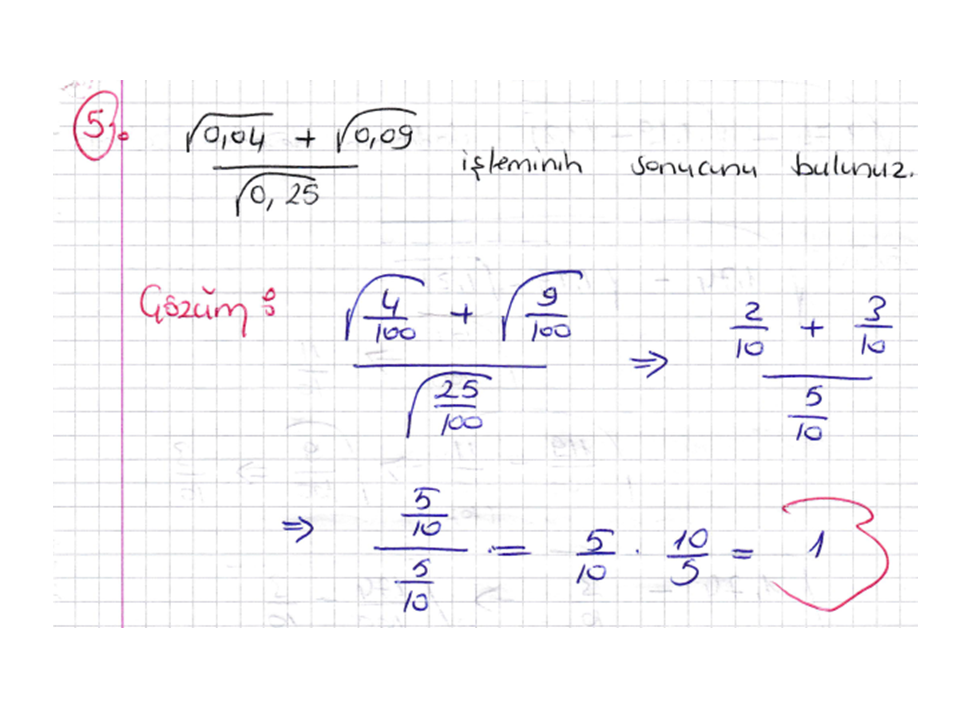 5. (√0,04 + √0,09) / √0,25 işleminin sonucunu bulunuz.
Çözüm : (√(4/100) + √(9/100)) / √(25/100) ⇒ (2/10 + 3/10) / (5/10)
⇒ (5/10) / (5/10) = 5/10 · 10/5 = 1